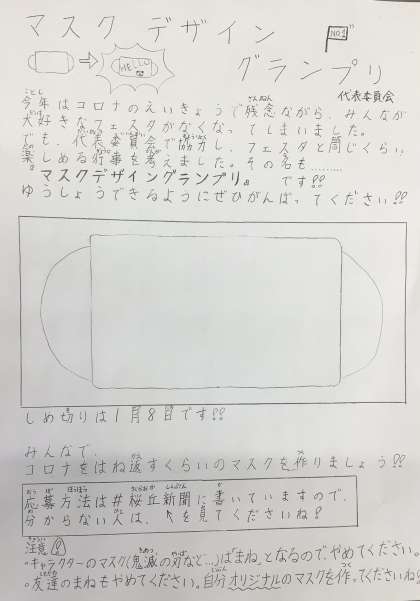 マスク デザイン
NO.1
HELLO
グランプリ
代表委員会
今年はコロナのえいきょうで残念ながら、みんなが
大好きなフェスタがなくなってしまいました。
でも、代表委員会で協力し、フェスタと同じくらい
楽しめる行事を考えました。その名も………
マスクデザイングランプリ。 です!!
ゆうしょうできるようにぜひがんばってください!!
しめ切りは1月8日です!!
みんなで、
コロナをはね返すくらいのマスクを作りましょう!!
応募方法は#桜丘新聞に書いていますので、
分からない人は、を見てくださいね!
注意
・キャラクターのマスク(鬼滅の刃など…)は"まね"となるのでやめてください。
・友達のまねもやめてください。自分オリジナルのマスクを作ってくださいね!